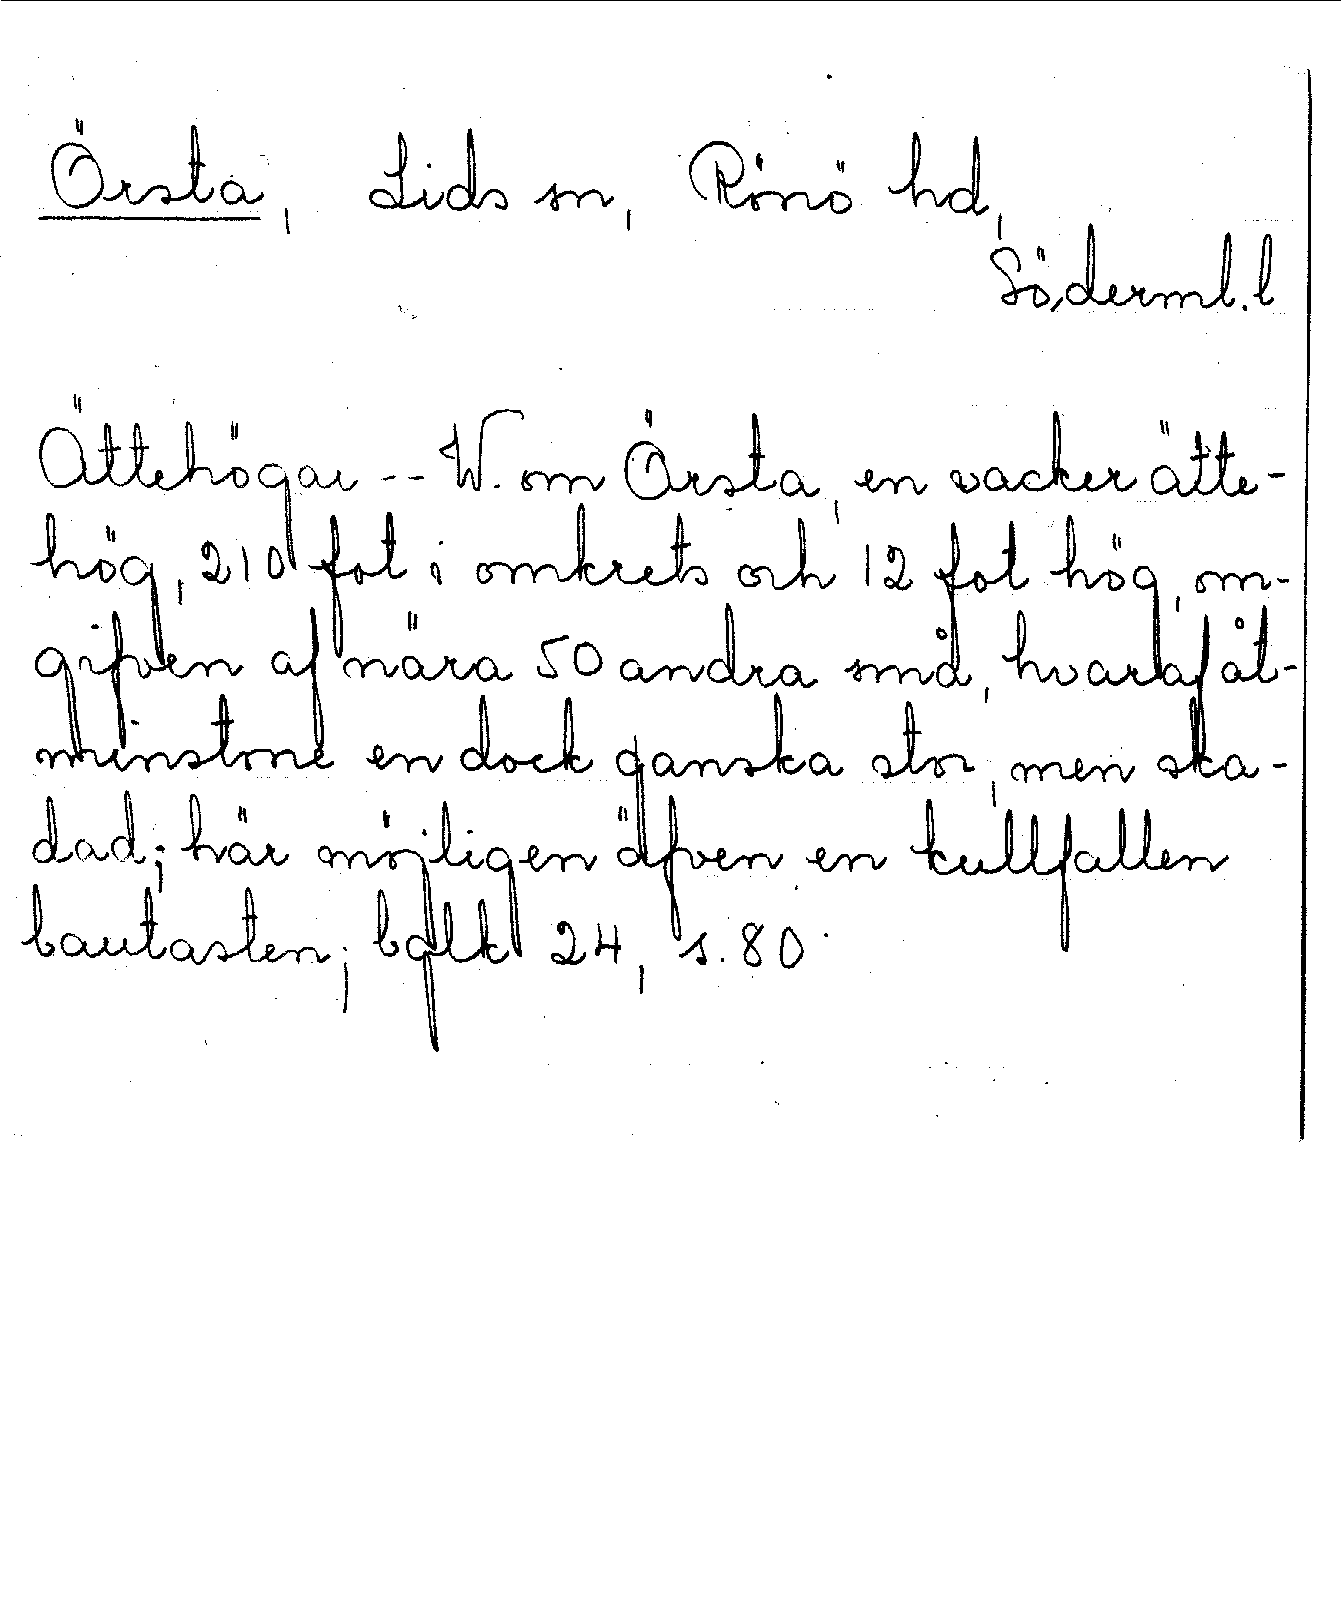 Örsta, Lids sn, Rönö hd,
Söderml. l
Ättehögar -- W. om Örsta, en vacker ätte-
hög, 210 fot i omkrets och 12 fot hög, om-
gifven af nära 50 andra små, hvaraf åt-
minstone en dock ganska stor, men ska-
dad; här möjligen äfven en kullfallen
bautasten; bälk 24, s. 80